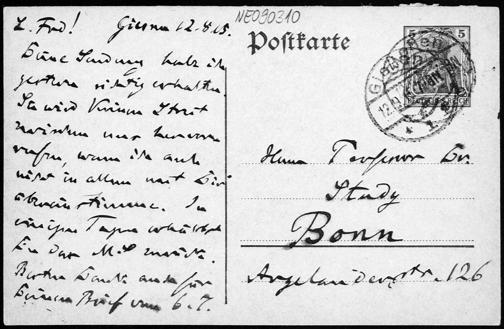 NE090310
L. Frd! Giessen 12.8.15.
Deine Sendung habe ich
gestern richtig erhalten.
Sie wird keinen Streit
zwischen uns hervor-
rufen, wenn ich auch
nicht in allem mit Dir
übereinstimme. In
einigen Tagen erhältst
Du das Mst. zurück.
Besten Dank auch für
Deinen Brief vom 6. 7.
Postkarte
5 5
GIESSEN
Herrn Professor Dr.
Study
Bonn
Argelanderstr. 126